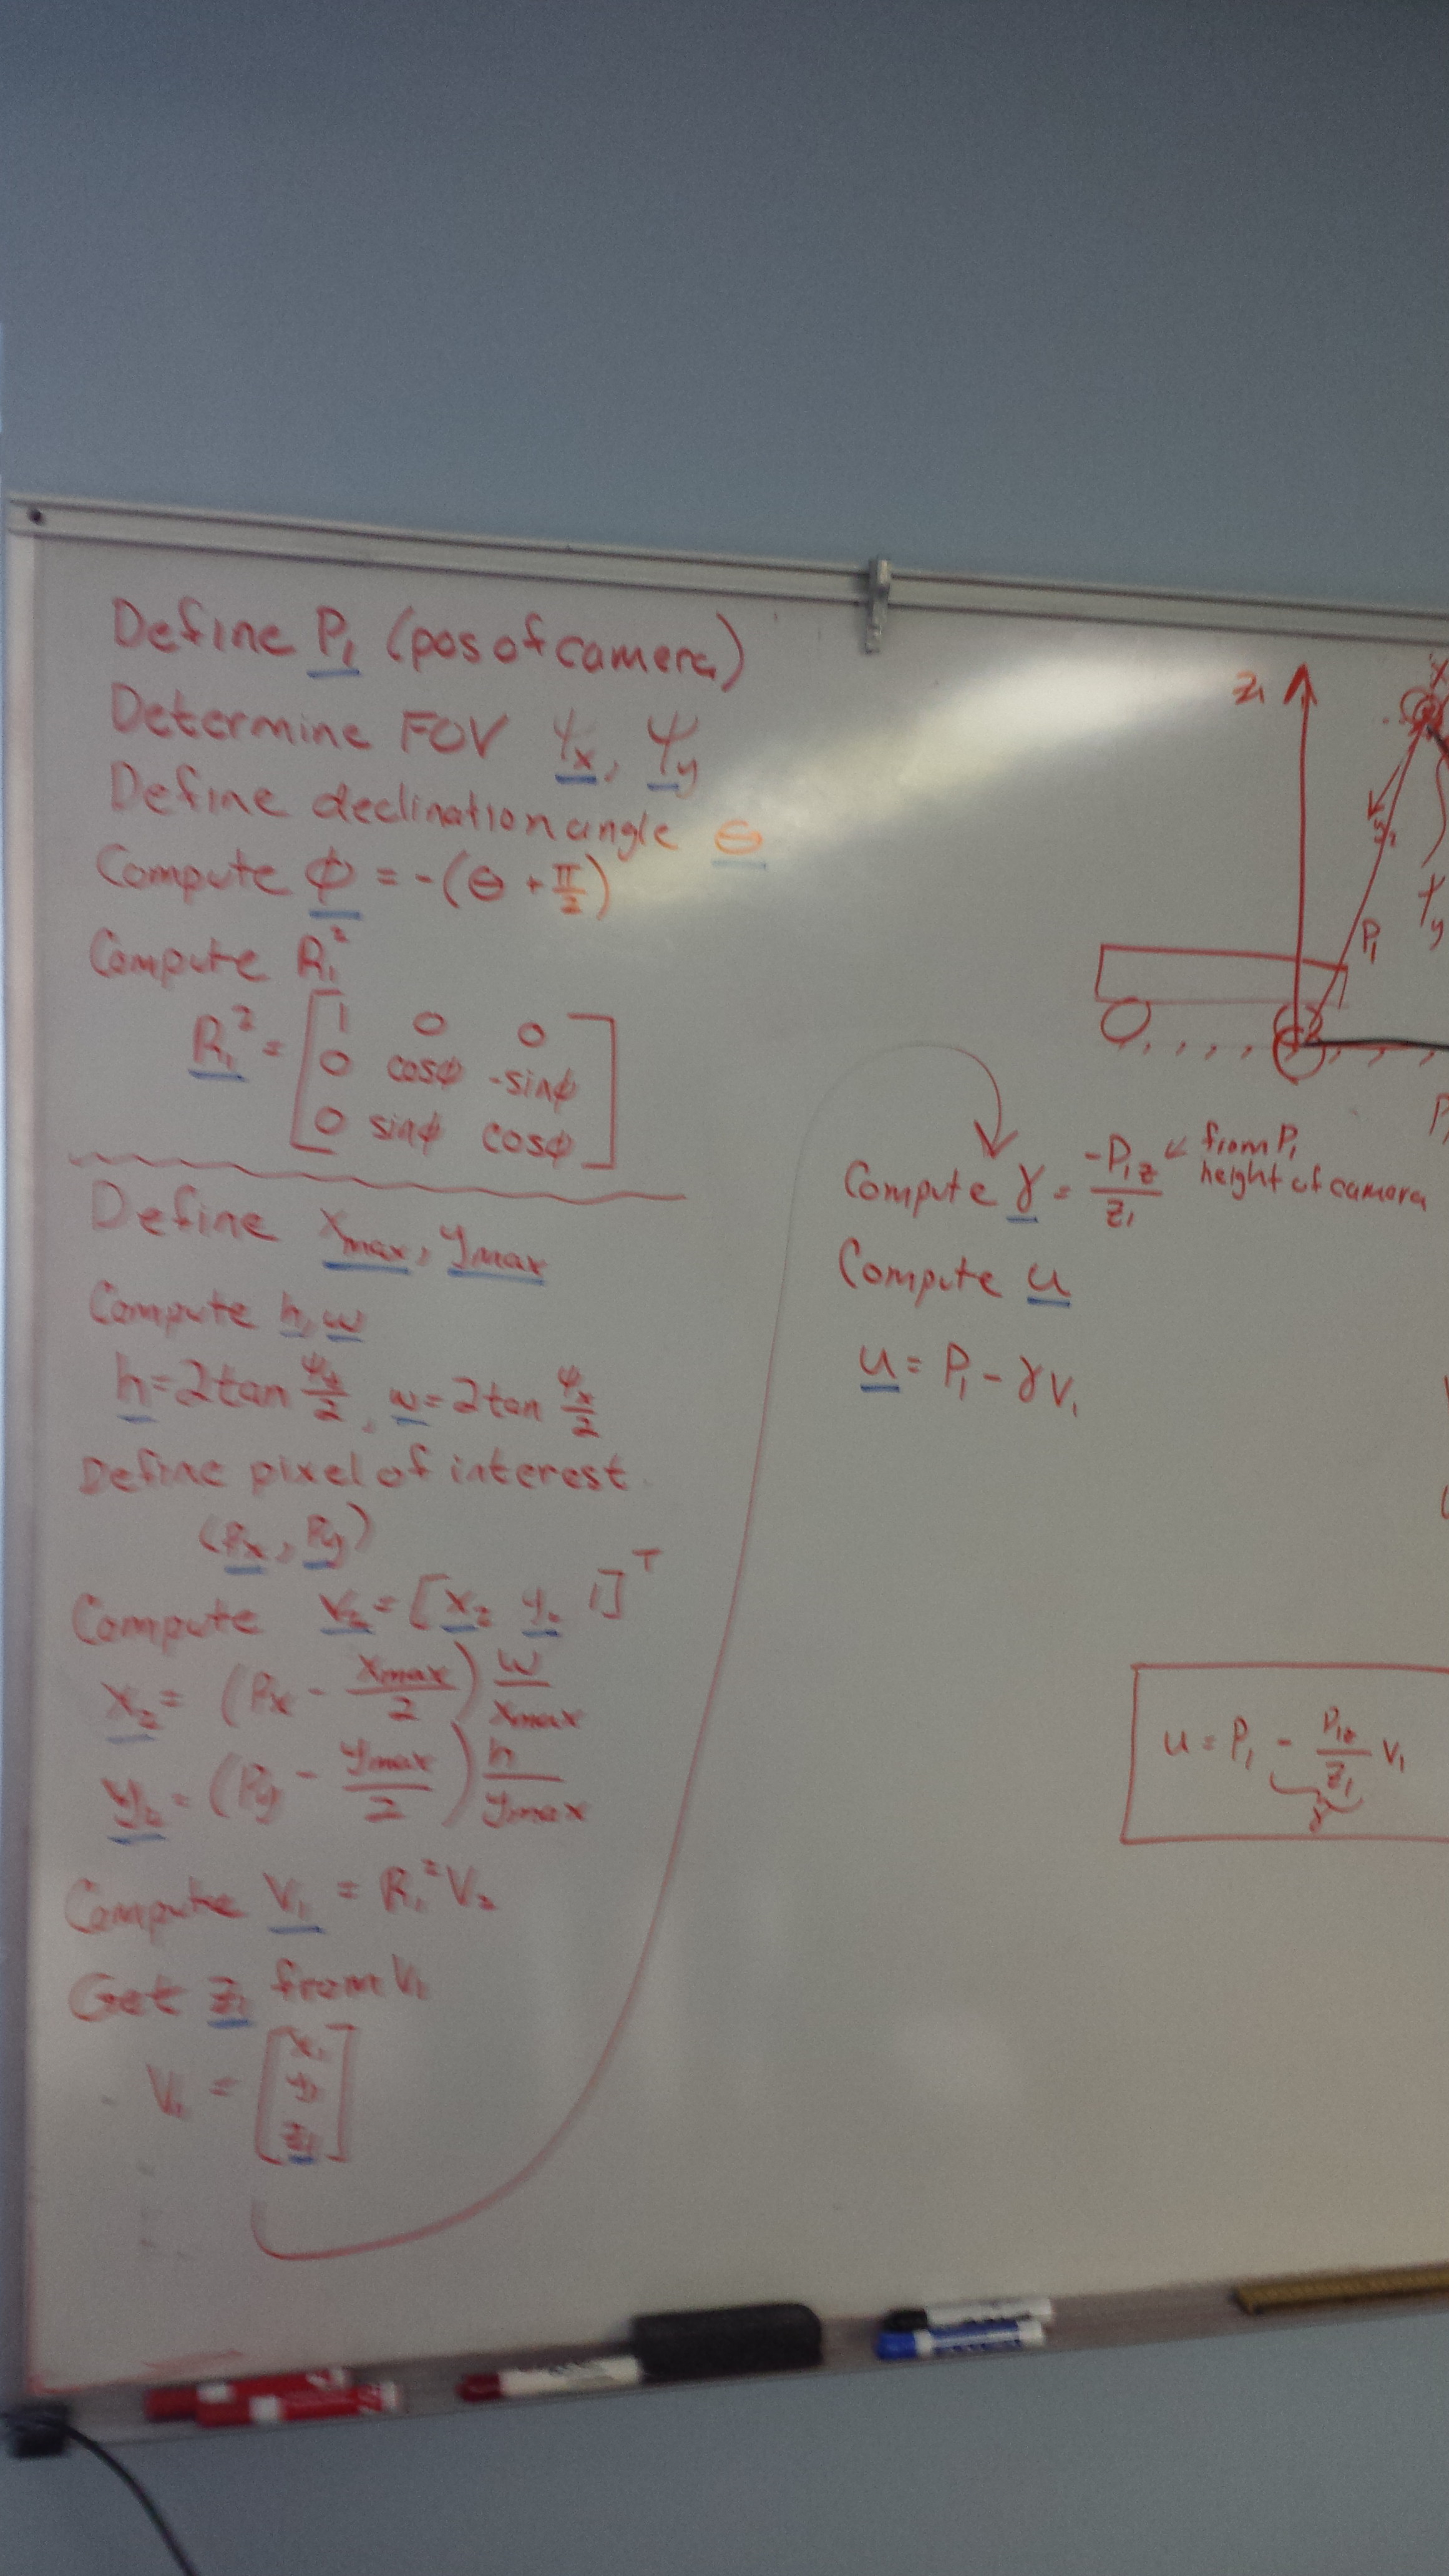 Define P₁ (pos of camera)
Determine FOV ψx, ψy
Define declination angle θ
Compute φ = -(θ + π/2)
Compute R₁²
R₁² = [1 0 0
0 cosφ -sinφ
0 sinφ cosφ]
Define xmax, ymax
Compute h, w
h = 2tan ψy/2, w = 2tan ψx/2
Define pixel of interest
(Px, Py)
Compute V₂ = [x₂ y₂ 1]ᵀ
x₂ = (Px - xmax/2) w/xmax
y₂ = (Py - ymax/2) h/ymax
Compute V₁ = R₁² V₂
Get z₁ from V₁
V₁ = [x₁
y₁
z₁]
Compute γ = -P₁z/z₁ < from P₁
height of camara
Compute u
u = P₁ - γV₁
u = P₁ - P₁z/z₁ V₁
γ
z
P₁
y₁